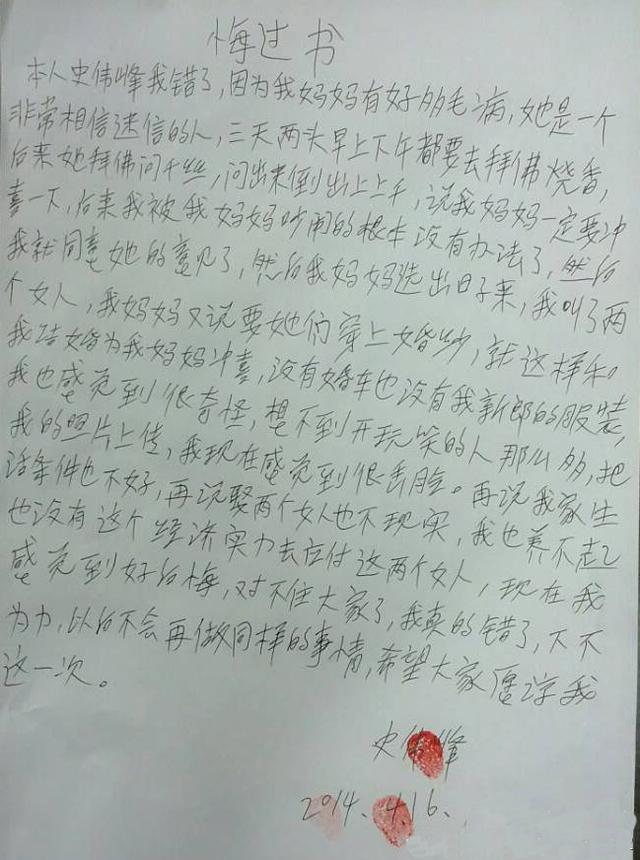 悔过书
本人史伟峰我错了,因为我妈妈有好多毛病,她是一个
非常相信迷信的人,三天两头早上下午都要去拜佛烧香,
后来她拜佛问千丝,问出来倒出上上千,说我妈妈一定要冲
喜一下,后来我被我妈妈吵闹的根本没有办法了,然后
我就同意她的意见了,然后我妈妈选出日子来,我叫了两
个女人,我妈妈又说要她们穿上婚纱,就这样和
我结婚为我妈妈冲喜,没有婚车也没有我新郎的服装,
我也感觉到很奇怪,想不到开玩笑的人那么多,把
我的照片上传,我现在感觉到很丢脸。再说我家生
活条件也不好,再说娶两个女人也不现实,我也养不起
也没有这个经济实力去应付这两个女人,现在我
感觉到好后悔,对不住大家了,我真的错了,下不
为力,以后不会再做同样的事情,希望大家原谅我
这一次。
史伟峰
2014、4.16、